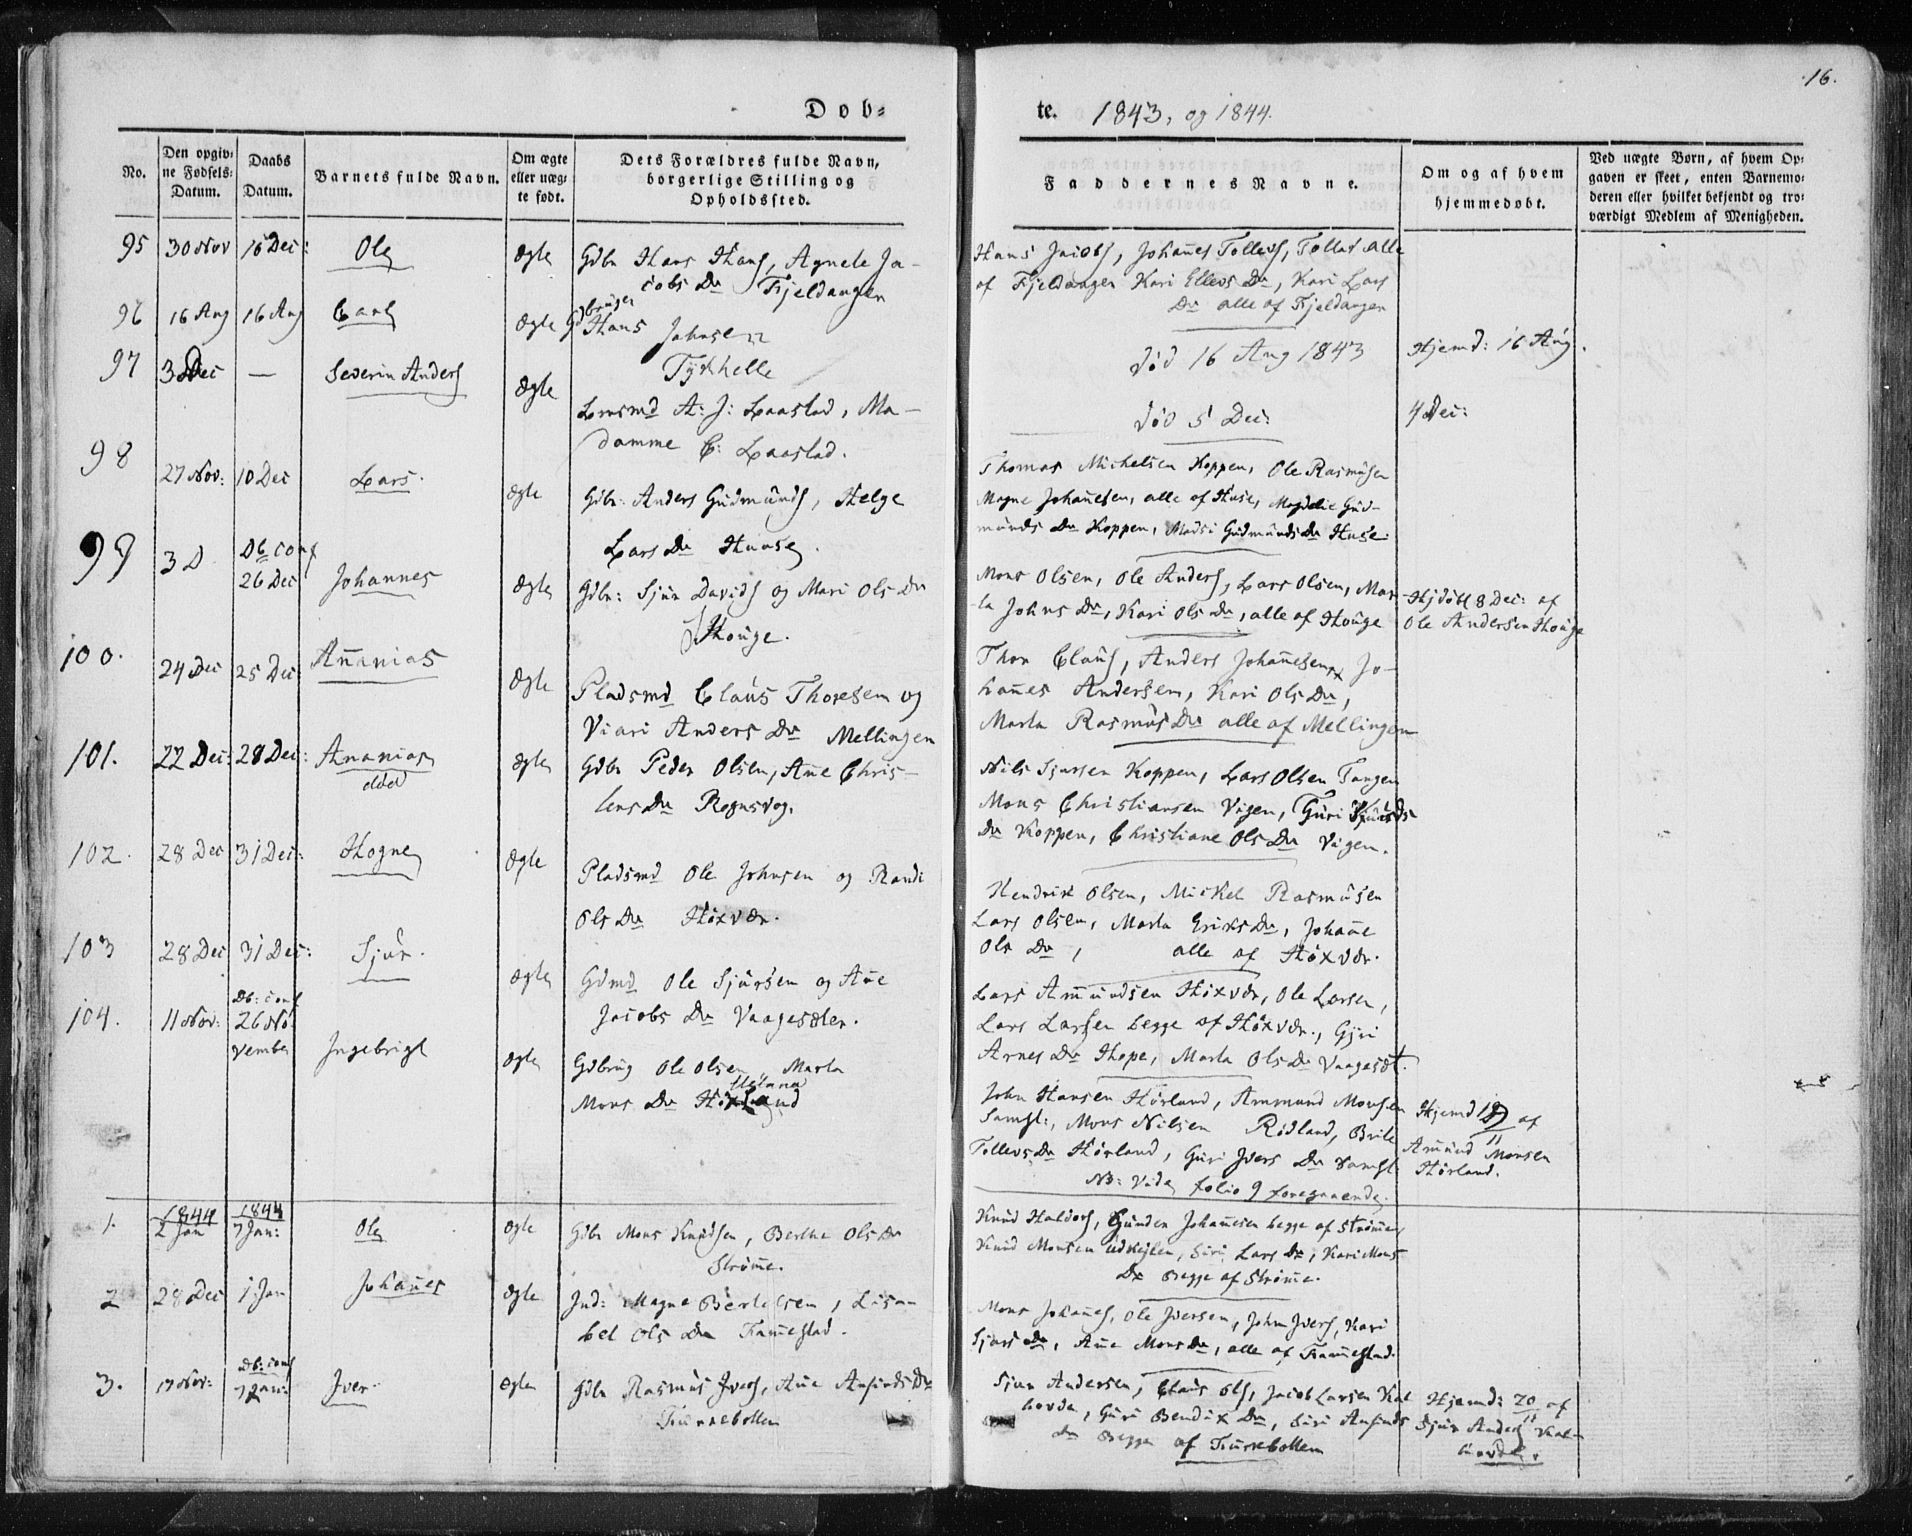 16.
Døb=
te. 1843, og 1844.
No.
Den opgiv=
ne Fødsels=
Datum.
Daabs
Datum.
Barnets fulde Navn.
Om ægte
eller uæg=
te født.
Dets Forældres fulde Navn,
borgerlige Stilling og
Opholdssted.
Faddernes Navne.
Om og af hvem
hjemmedøbt.
Ved uægte Børn, af hvem Op=
gaven er skeet, enten Barnemo=
deren eller hvilket bekjendt og tro=
værdigt Medlem af Menigheden.
95 30 Nov 16 Dec: Ole Ægte Gdbr Hans Hans, Agnete Ja-
cobs Dr Fjeldanger
Hans Jacobs, Johannes Tollevs, Tollef alle
af Fjeldanger Kari Ellevs Dr, Kari Lars
Dr alle af Fjeldanger
96 16 Aug 16 Aug Carl Ægte Gdbruger
Hans Johnsen
Død 16 Aug 1843 Hjemd: 16 Aug.
97 3 Dec — Severin Anders Ægte
Død 5 Dec: 4 Dec:
A: J: Laastad, Ma-
damme C: Laastad.
98 27 Nov: 10 Dec Lars. Ægte Gdbr: Anders Gudmunds, Helge
Lars Dr Huuse.
Thomas Michelsen Koppen, Ole Rasmusen
Magne Johannesen, alle af Huse, Gud-
munds Dr Koppen, Madsi Gudmunds Dr Huse.
99 3 D Db conf
26 Dec Johannes Ægte Gdbr: Sjur Davids og Mari Ols Dr
Houge.
Mons Olsen, Ole Anders, Lars Olsen, Mar-
ta Johns Dr, Kari Ols Dr, alle af Houge
Hjdøbt 8 Dec: af
Ole Andersen Houge
100. 24 Dec 25 Dec Ananias Ægte Pladsmd Claus Thoresen og
Anders Dr Mellingen
Thor Claus, Anders Johannesen, Jo-
hannes Andersen, Kari Ols Dr,
Marta Rasmus Dr alle af Mellingen
101. 22 Dec: 28 Dec: Ananias
død
Ægte Gdbr Peder Olsen, Anne Chris-
tens Dr Rognsvog.
Nils Sjursen Koppen, Lars Olsen Tangen
Mons Christiansen Vigen, Guri
Dr Koppen, Christiane Ols Dr Vigen.
102. 28 Dec 31 Dec: Hogne Ægte Pladsmd Ole Johnsen og Randi
Ols Dr Høxvær.
Hendrik Olsen, Mickel Rasmusen
Lars Olsen, Marta Eriks Dr, Johanne
Ols Dr, alle af Høxvær.
103 28 Dec 31 Dec: Sjur. Ægte Gdmd Ole Sjursen og Anne
Jacobs Dr Vaagesæter.
Lars Amundsen Høxvær, Ole Larsen,
Lars Larsen begge af Høxvær., Gjri
Arnes Dr Hope, Marta Ols Dr Vaagesæt.
104. 11 Nov: Db: conf
26 No-
vember Ingebrigt Ægte Gdbrug Ole Olsen, Marta
Mons Dr
John Hansen Hørland, Ammund Monsen
Samst:, Mons Nilsen Rødland, Brite
Tollevs Dr Hørland, Guri Ivers Dr samst
NB: Vide folio 9 foregaaende.
Hjemd af
Amund Monsen
Hørland.
1844 1844
1. 2 Jan 7 Jan: Ole Ægte Gdbr Mons Knudsen, Berthe Ols Dr
Strømme.
Knud Haldors, Gunder Johannesen begge af Strømme
Knud Monsen Udkeilen, Siri Lars Dr, Kari Mons
Dr begge af Strømme.
2 28 Dec 1 Jan Johannes Ægte Ind: Magne Bertelsen, Lisa-
bet Ols Dr Frammestad.
Mons Johannes, Ole Iversen, John Ivers, Kari
Sjurs Dr, Anne Mons Dr, alle af Frammestad.
3. 17 Nov: Db: conf
7 Jan: Iver. Ægte Gdbr Rasmus Ivers, Anne Anfinds Dr
Turrebotten
Sjur Andersen, Claus Ols, Jacob Larsen Kal
hovda, Guri Bendix Dr, Siri Anfinds
Dr begge af Turrebotten
Hjemd: 20/11 af
Sjur Anders Kal-
hovda.